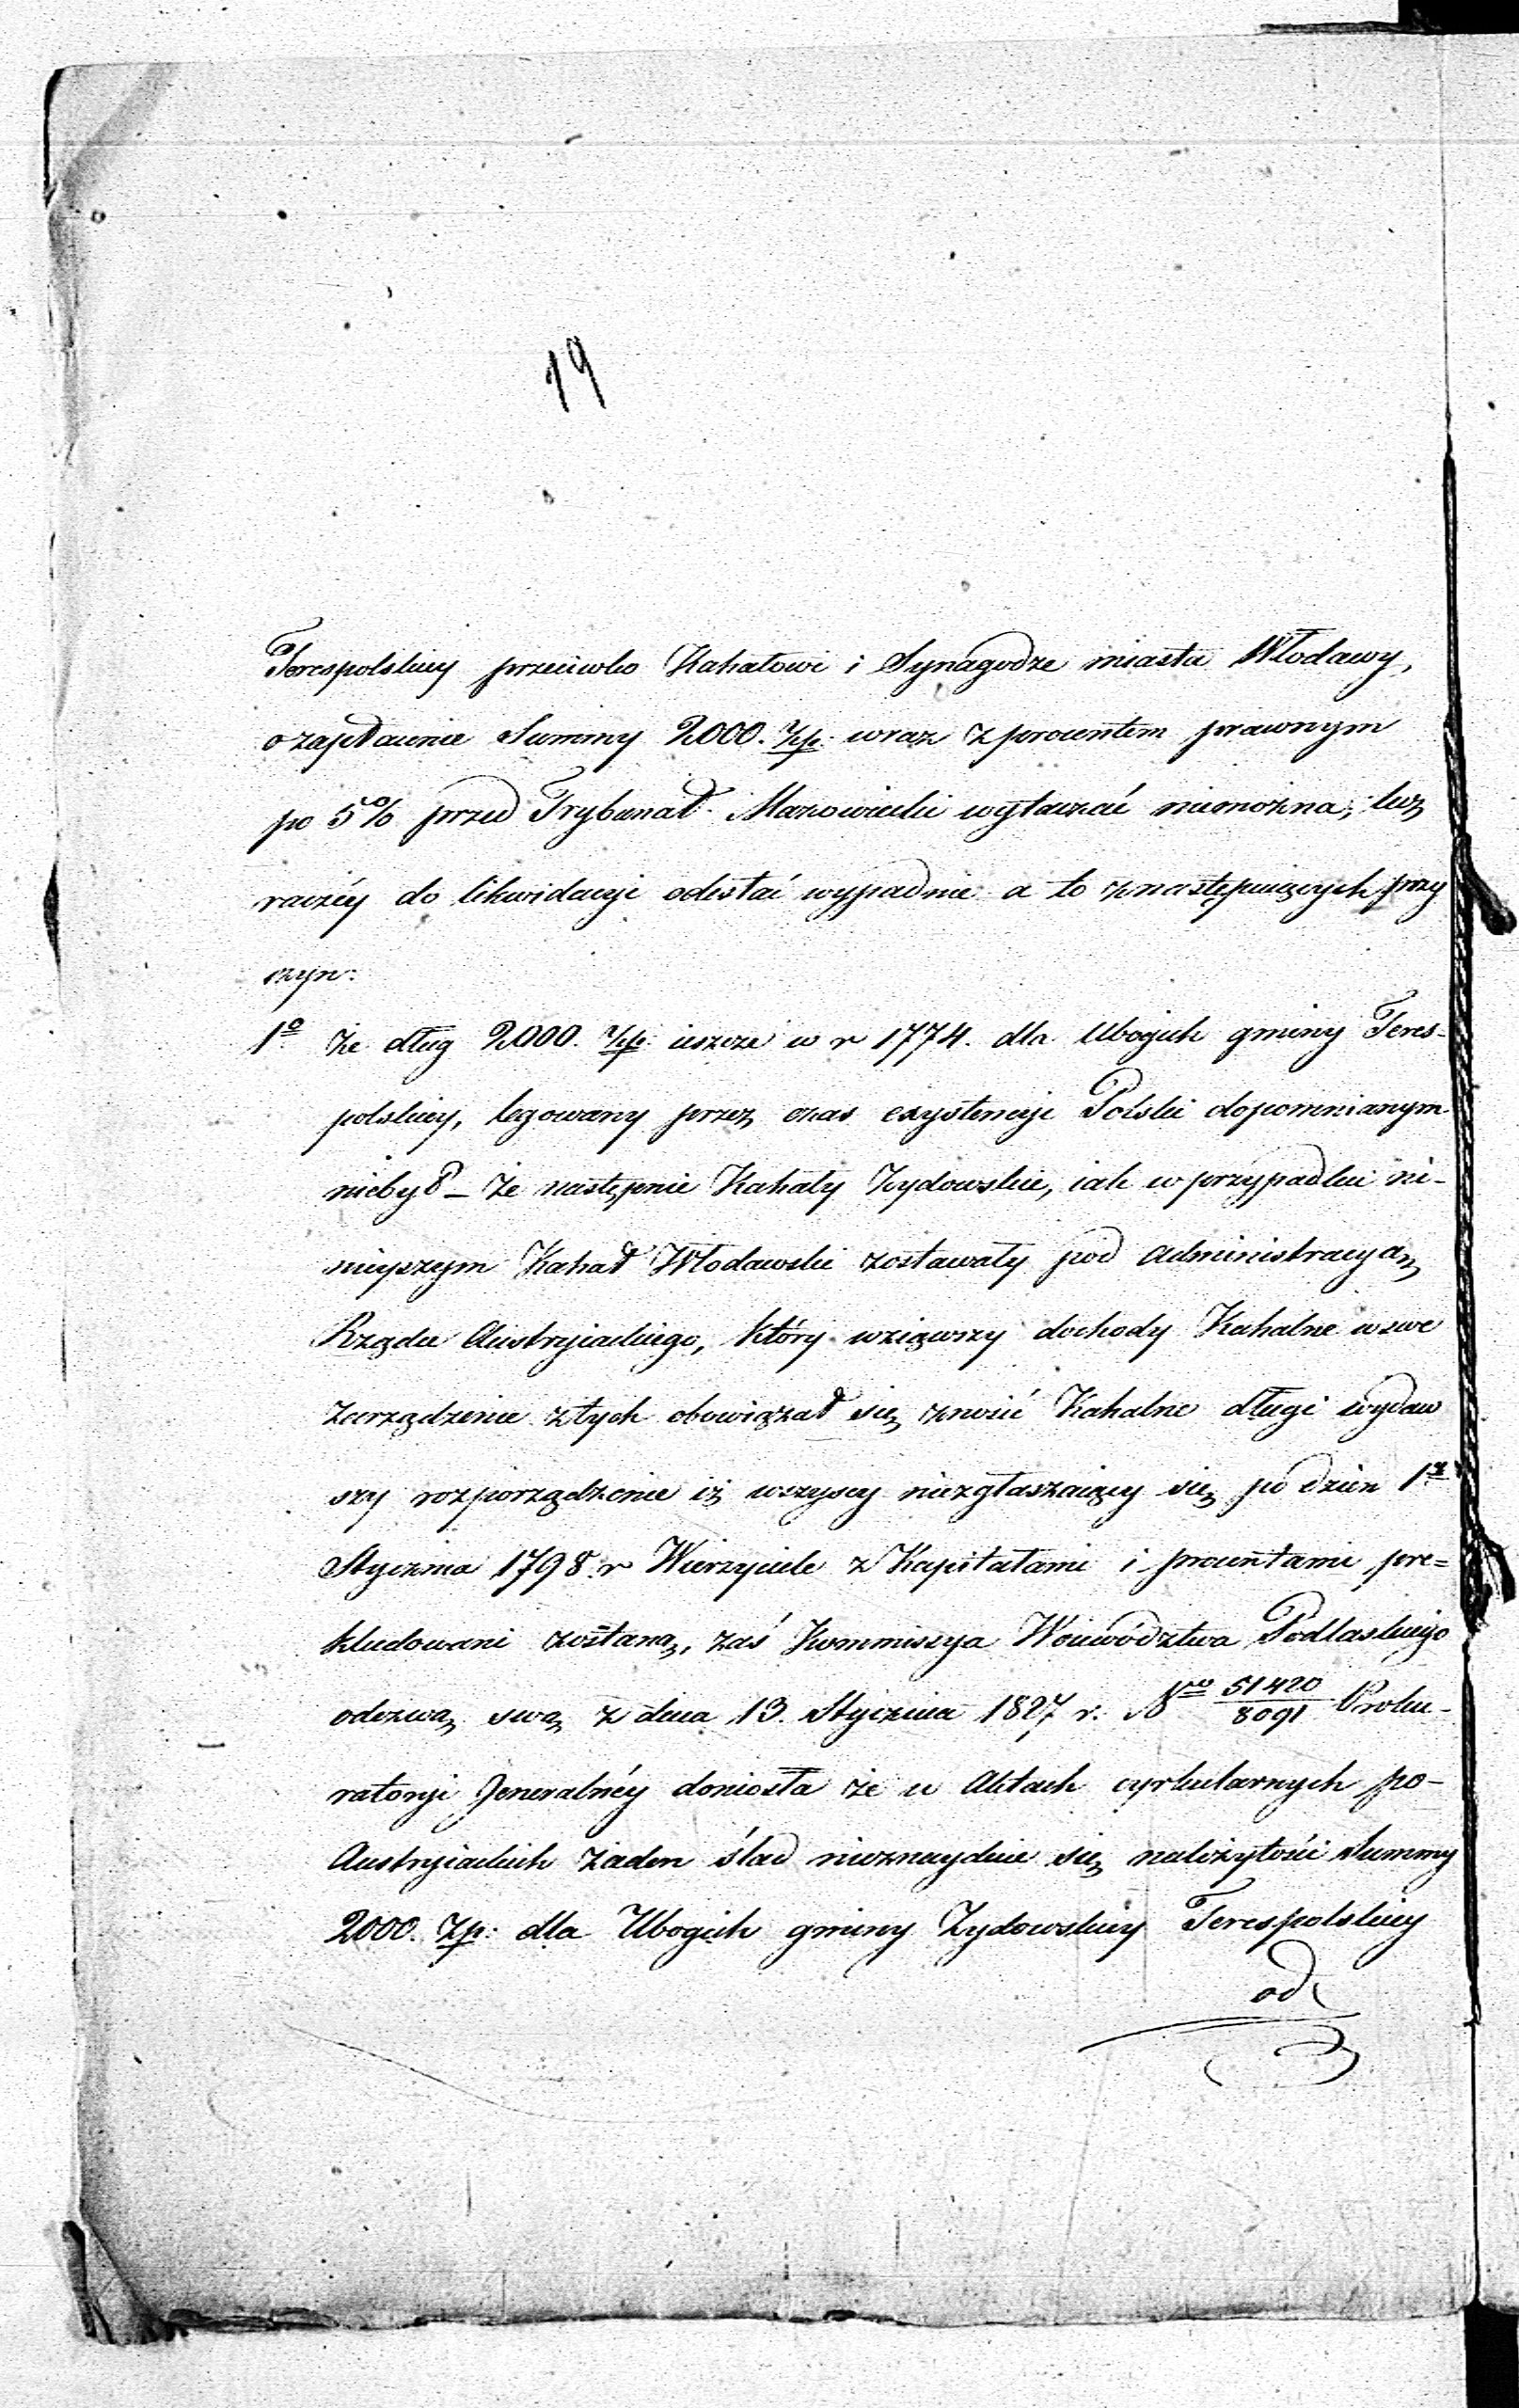 19
Terespolskiey przeciwko Kahałowi i Synagodze miasta Włodawy,
o zapłacenie Summy 2000. Złp: wraz z procentem prawnym
po 5% przed Trybunał Mazowiecki wytaczać niemożna, lecz
raczéy do likwidacyi odesłać wypadnie a to z następuiących przy
czyn:
1º Że dług 2000. Złp: ieszcze w r 1774. dla Ubogich gminy Teres-
polskiey, legowany przez czas exystencyi Polski dopomnianym
niebył – że następnie Kahały Żydowskie, iak w przypadku ni-
nieyszym Kahał Włodawski zostawały pod administracyą
Rządu Austryiackiego, który wziąwszy dochody Kahalne w swe
Zarządzenie z tych obowiązał się znosić Kahalne długi wydaw
szy rozporządzenie iż wszyscy niezgłaszaiący się po dzień 1º
Stycznia 1798 r Wierzyciele z Kapitałami i procentami pre=
kludowani zostaną, zaś Kommissya Woiewództwa Podlaskiego
odezwą swą z dnia 13. Stycznia 1827 r. Nro 51420/8091 Proku-
ratoryi Jeneralnéy doniosła że w Aktach cyrkularnych po-
Austryiackich żaden ślad nieznayduie się należytości Summy
2000. Złp: dla Ubogich gminy Żydowskiey Terespolskiey
od